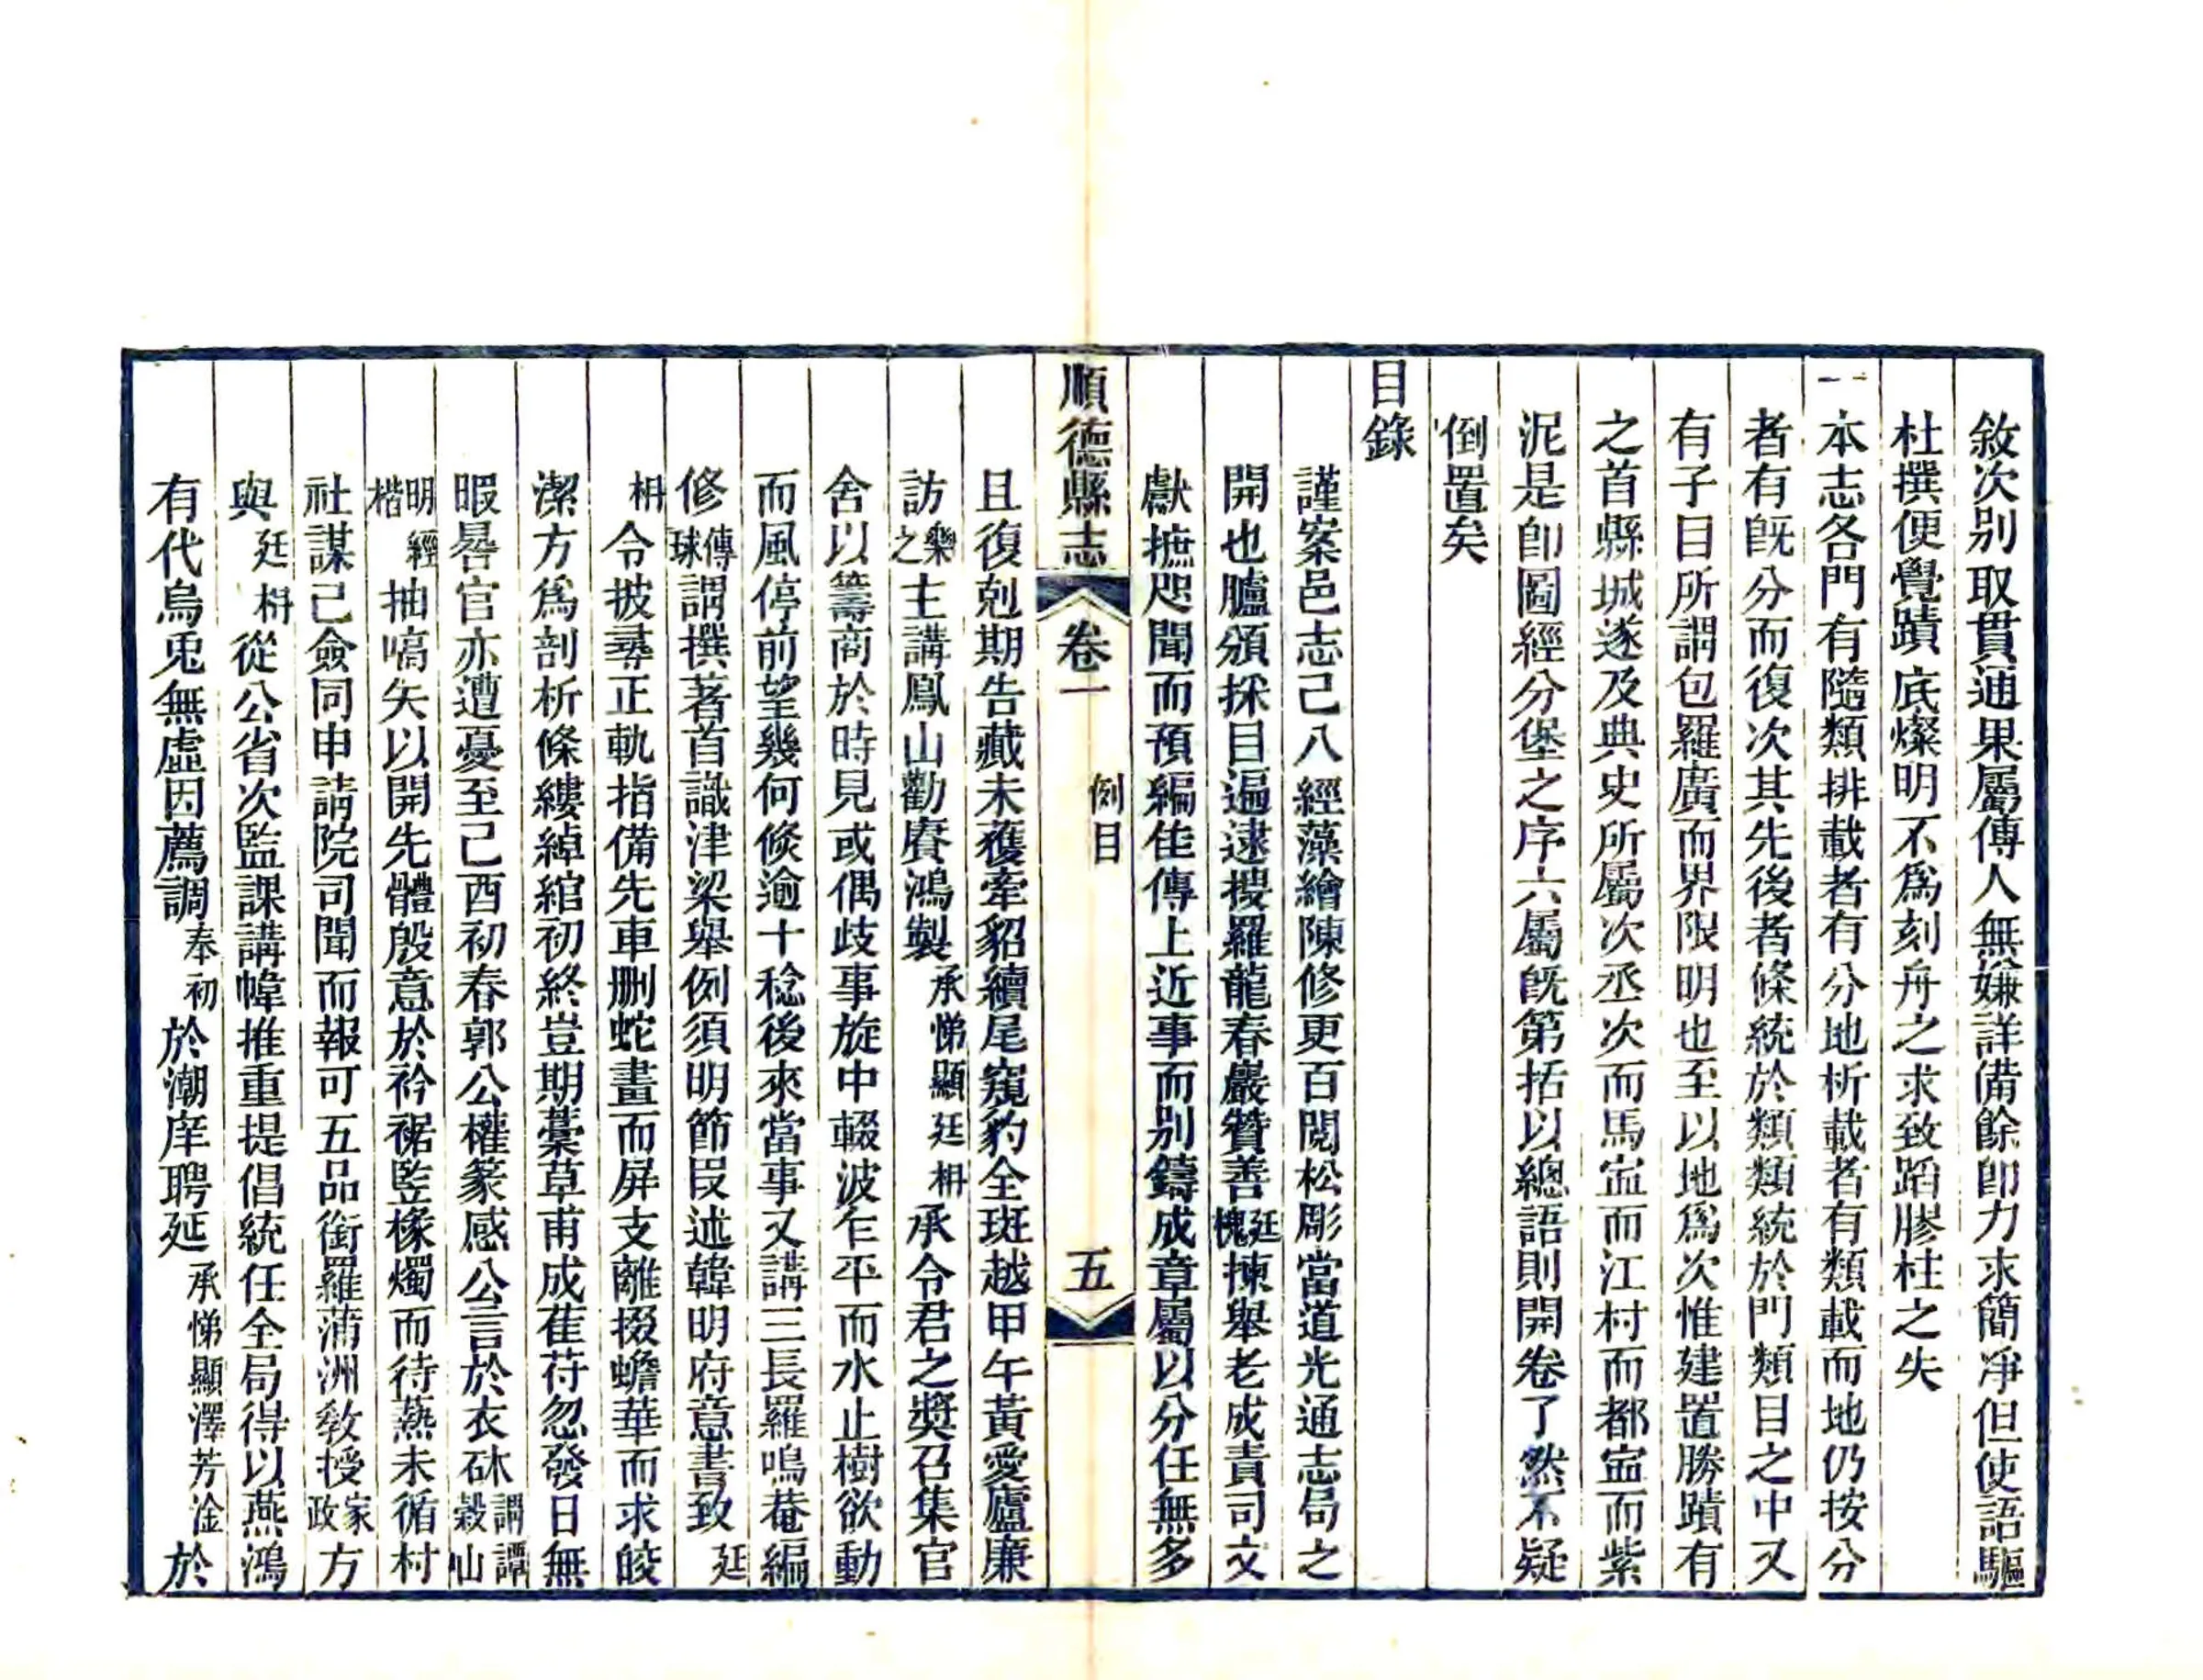 敘次別取貫通果屬傳人無嫌詳備餘卽力求簡凈但使語驅
杜撰便覺蹟底燦明不爲刻舟之求致蹈膠柱之失
一本志各門有隨類排載者有分地析載者有類載而地仍按分
者有旣分而復次其先後者條統於類類統於門類目之中又
有子目所謂包羅廣而界限明也至以地爲次惟建置勝蹟有
之首縣城遂及典史所屬次丞次而馬寍而江村而都寍而紫
泥是卽圖經分堡之序六屬旣第括以總語則開卷了然不疑
倒置矣
目錄
謹案邑志己八經藻繪陳修更百閱松彫當道光通志局之
開也臚頒採目遍逮搜羅龍春巖贊善廷槐揀舉老成責司文
獻摭咫聞而預編佳傳上近事而別鑄成章屬以分任無多
順德縣志
卷一
例目
五
且復剋期告藏未獲牽貂續尾窺豹全斑越甲午黃愛廬廉
訪樂之主講鳳山勸賡鴻製承悌顯廷枏承令君之奬召集官
舍以籌商於時見或偶歧事旋中輟波乍平而水止樹欲動
而風停前望幾何倐逾十稔後來當事又講三長羅鳴菴編
修傳球謂撰著首識津梁舉例須明節叚述韓明府意書致廷
枏令披尋正軌指備先車删蛇畫而屏支離掇蟾華而求皎
潔方爲剖析條縷綽綰初終豈期藁草甫成萑苻忽發日無
暇晷官亦遭憂至己酉初春郭公權篆感公言於衣砅謂譚榖山
明經楷抽嗃矢以開先體殷意於衿裾監椽燭而待爇未循村
社謀己僉同申請院司聞而報可五品銜羅蒲洲敎授家政方
與廷枏從公省次監課講幃推重提倡統任全局得以燕鴻
有代烏兎無虛因薦調奉初於潮庠聘延承悌顯澤芳淦於